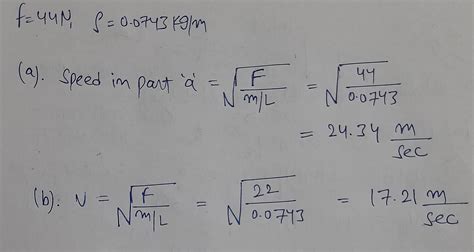 f=44N, ρ=0.0743 Kg/m
(a). Speed in part 'a' = √(F/(m/L)) = √(44/0.0743)
= 24.34 m/sec
(b). v = √(f/(m/L)) = √(22/0.0743) = 17.21 m/sec